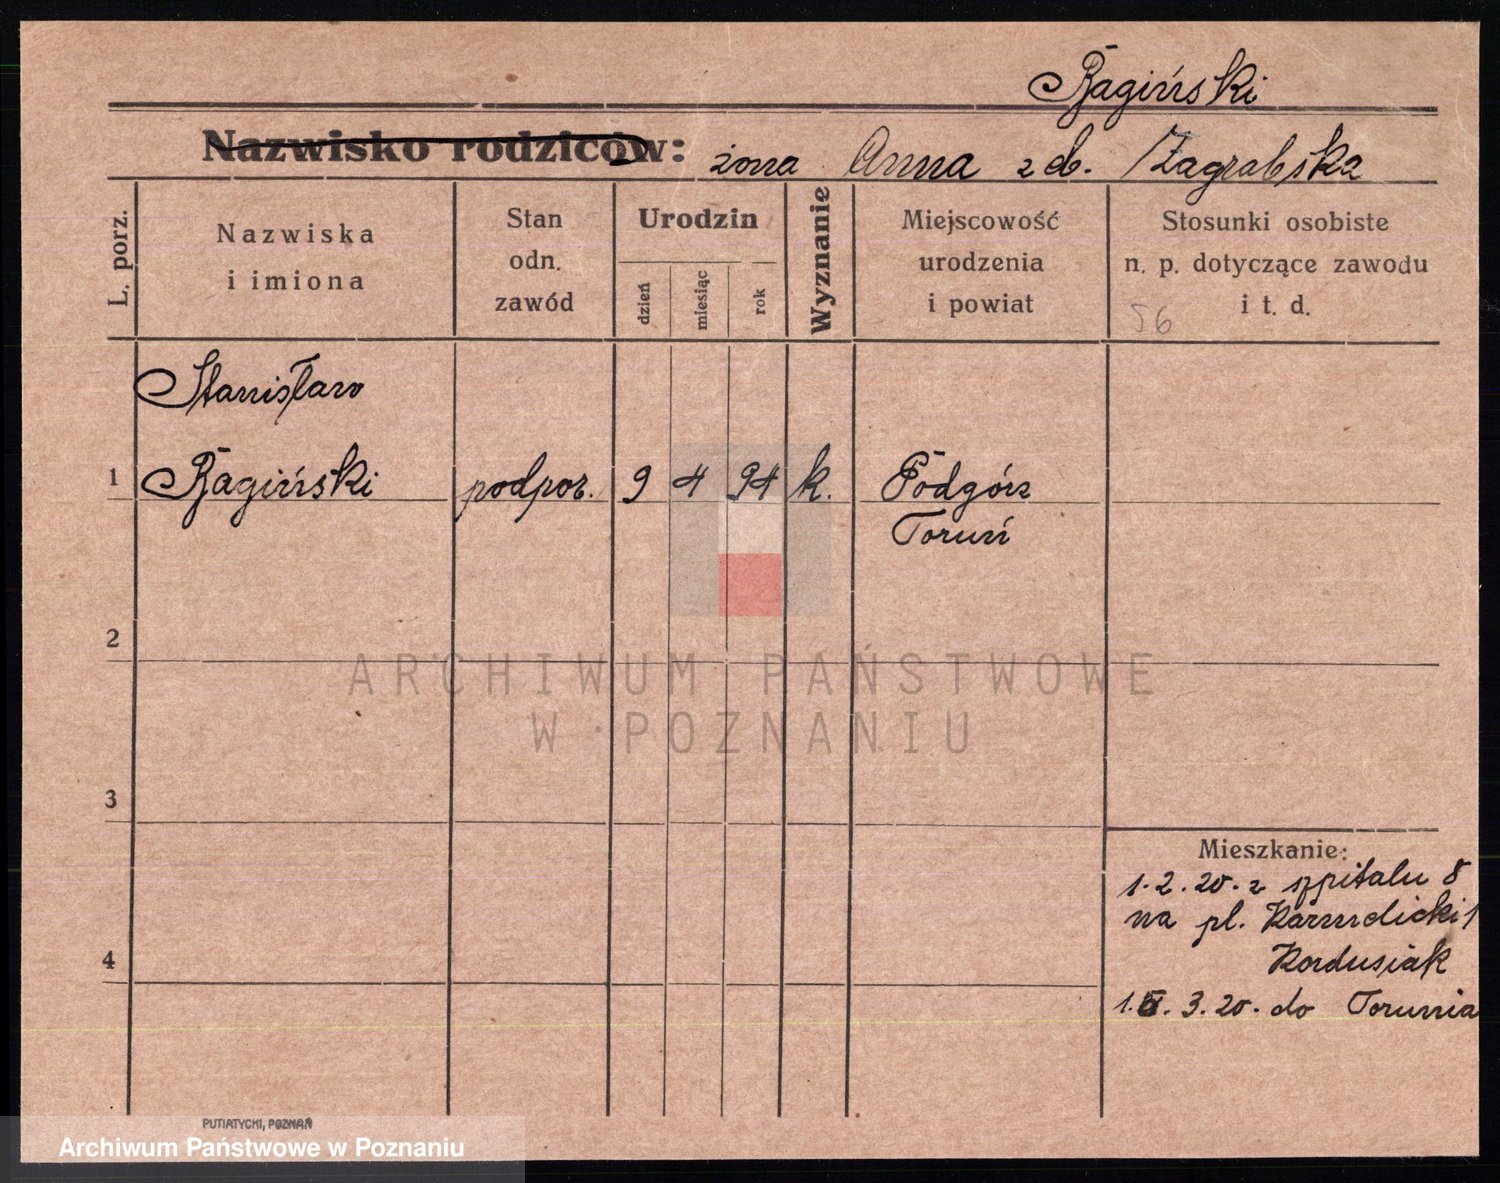 Bagiński
Nazwisko rodziców: żona Anna zd. Zagrabska
L. porz.
Nazwiska
i imiona
Stan
odn.
zawód
Urodzin
dzień
miesiąc
rok
Wyznanie
Miejscowość
urodzenia
i powiat
Stosunki osobiste
n. p. dotyczące zawodu
i t. d.
56
Stanisław
1 Bagiński podpor. 9 4 94 k. Podgórz
Toruń
2
ARCHIWUM PAŃSTWOWE
W POZNANIU
3
Mieszkanie:
1.2.20. z szpitalu 8
na pl. Karmelicki 1
Kordusiak
4
3.20. do Torunia
PUTIATYCKI, POZNAŃ
Archiwum Państwowe w Poznaniu